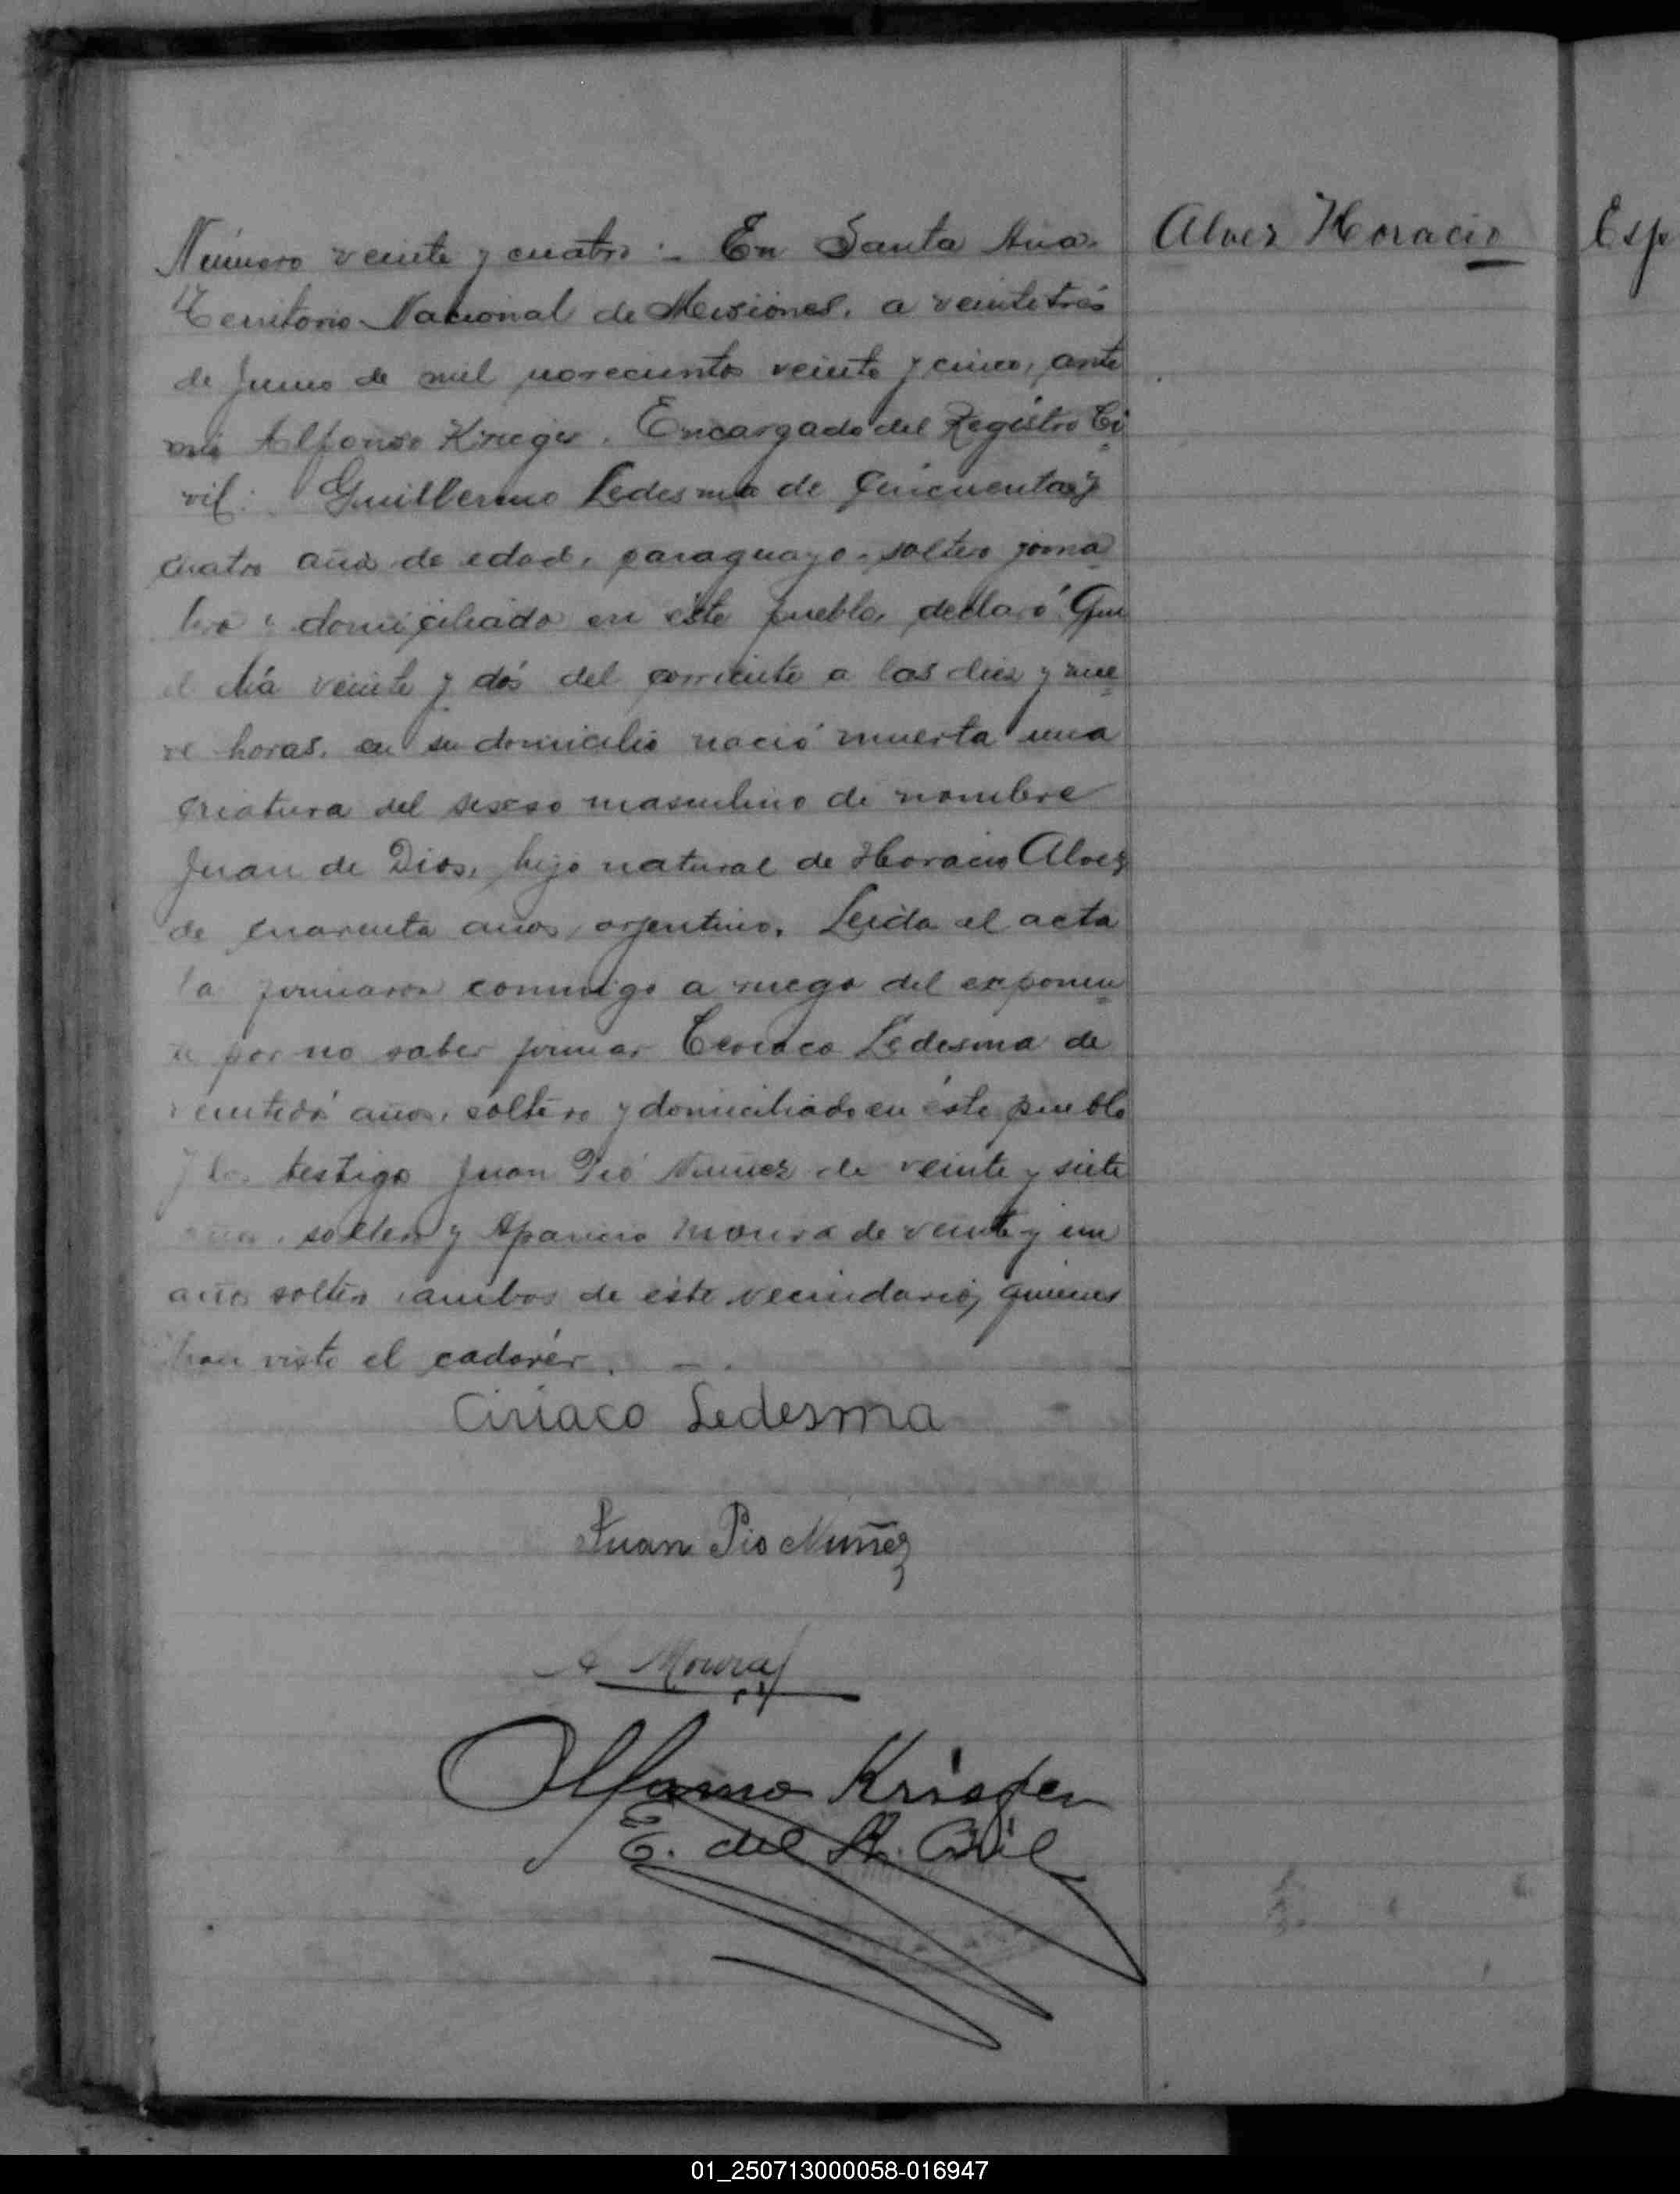 Alvez Horacio
Esp
Número veinte y cuatro :- En Santa Ana.
Territorio Nacional de Misiones, a veintetrés
de Junio de mil novecientos veinte y cinco, ante
mi Alfonso Krieger, Encargado del Registro Ci
vil: Guillermo Ledesma de cincuenta y
cuatro años de edad, paraguayo, soltero jorna
lero y domiciliado en éste pueblo, declaró: Que
el día veinte y dós del corriente a las diez y nue
ve horas, en su domicilio nació muerta una
criatura del sexso masculino de nombre
Juan de Dios, hijo natural de Horacio Alvez
de cuarenta años, arjentino. Leida el acta
la firmaron conmigo a ruego del exponen
te por no saber firmar Ceriaco Ledesma de
veintidós años, soltero y domiciliado en éste pueblo
y los testigo Juan Pió Nuñez de veinte y siete
años, soltero y Aparicio Moura de veinte y un
año soltero, ambos de este vecindario, quienes
han visto el cadavér. - .
Ciriaco Ledesma
Juan Pio Nuñez
A Moura
Alfonso Krieger
E. del R. Civil
01_250713000058-016947